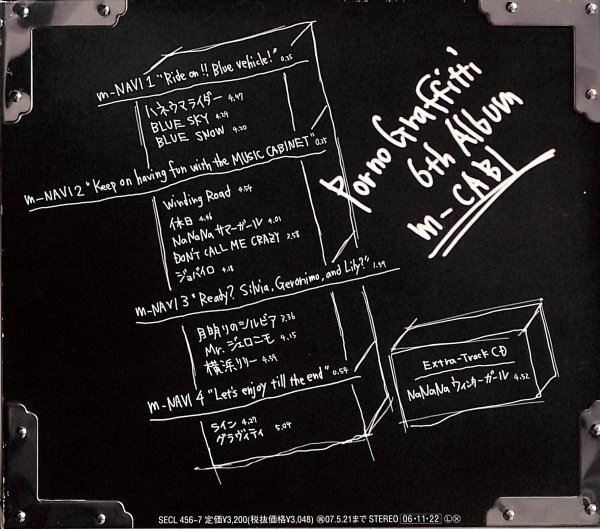 m-NAVI 1 "Ride on!! Blue vehicle!" 0.35
ハネウマライダー 4.47
BLUE SKY 4.29
BLUE SNOW 4.20
m-NAVI 2 "Keep on having fun with the MUSIC CABINET" 0.25
Winding Road 4.54
休日 4.46
NaNaNa サマーガール 4.01
DON'T CALL ME CRAZY 2.58
ジョバイロ 4.18
m-NAVI 3 "Ready? Silvia, Geronimo, and Lily?" 1.59
月明りのシルビア 3.36
Mr. ジェロニモ 4.15
横浜リリー 4.59
m-NAVI 4 "Let's enjoy till the end" 0.54
ライン 4.27
グラヴィティ 5.04
Porno Graffitti
6th Album
m-CABI
Extra-Track CD
NaNaNa ウィンターガール 4.52
SECL 456-7 定価¥3,200(税抜価格¥3,048) ㊢07.5.21まで STEREO 06・11・22 Ⓛ Ⓧ